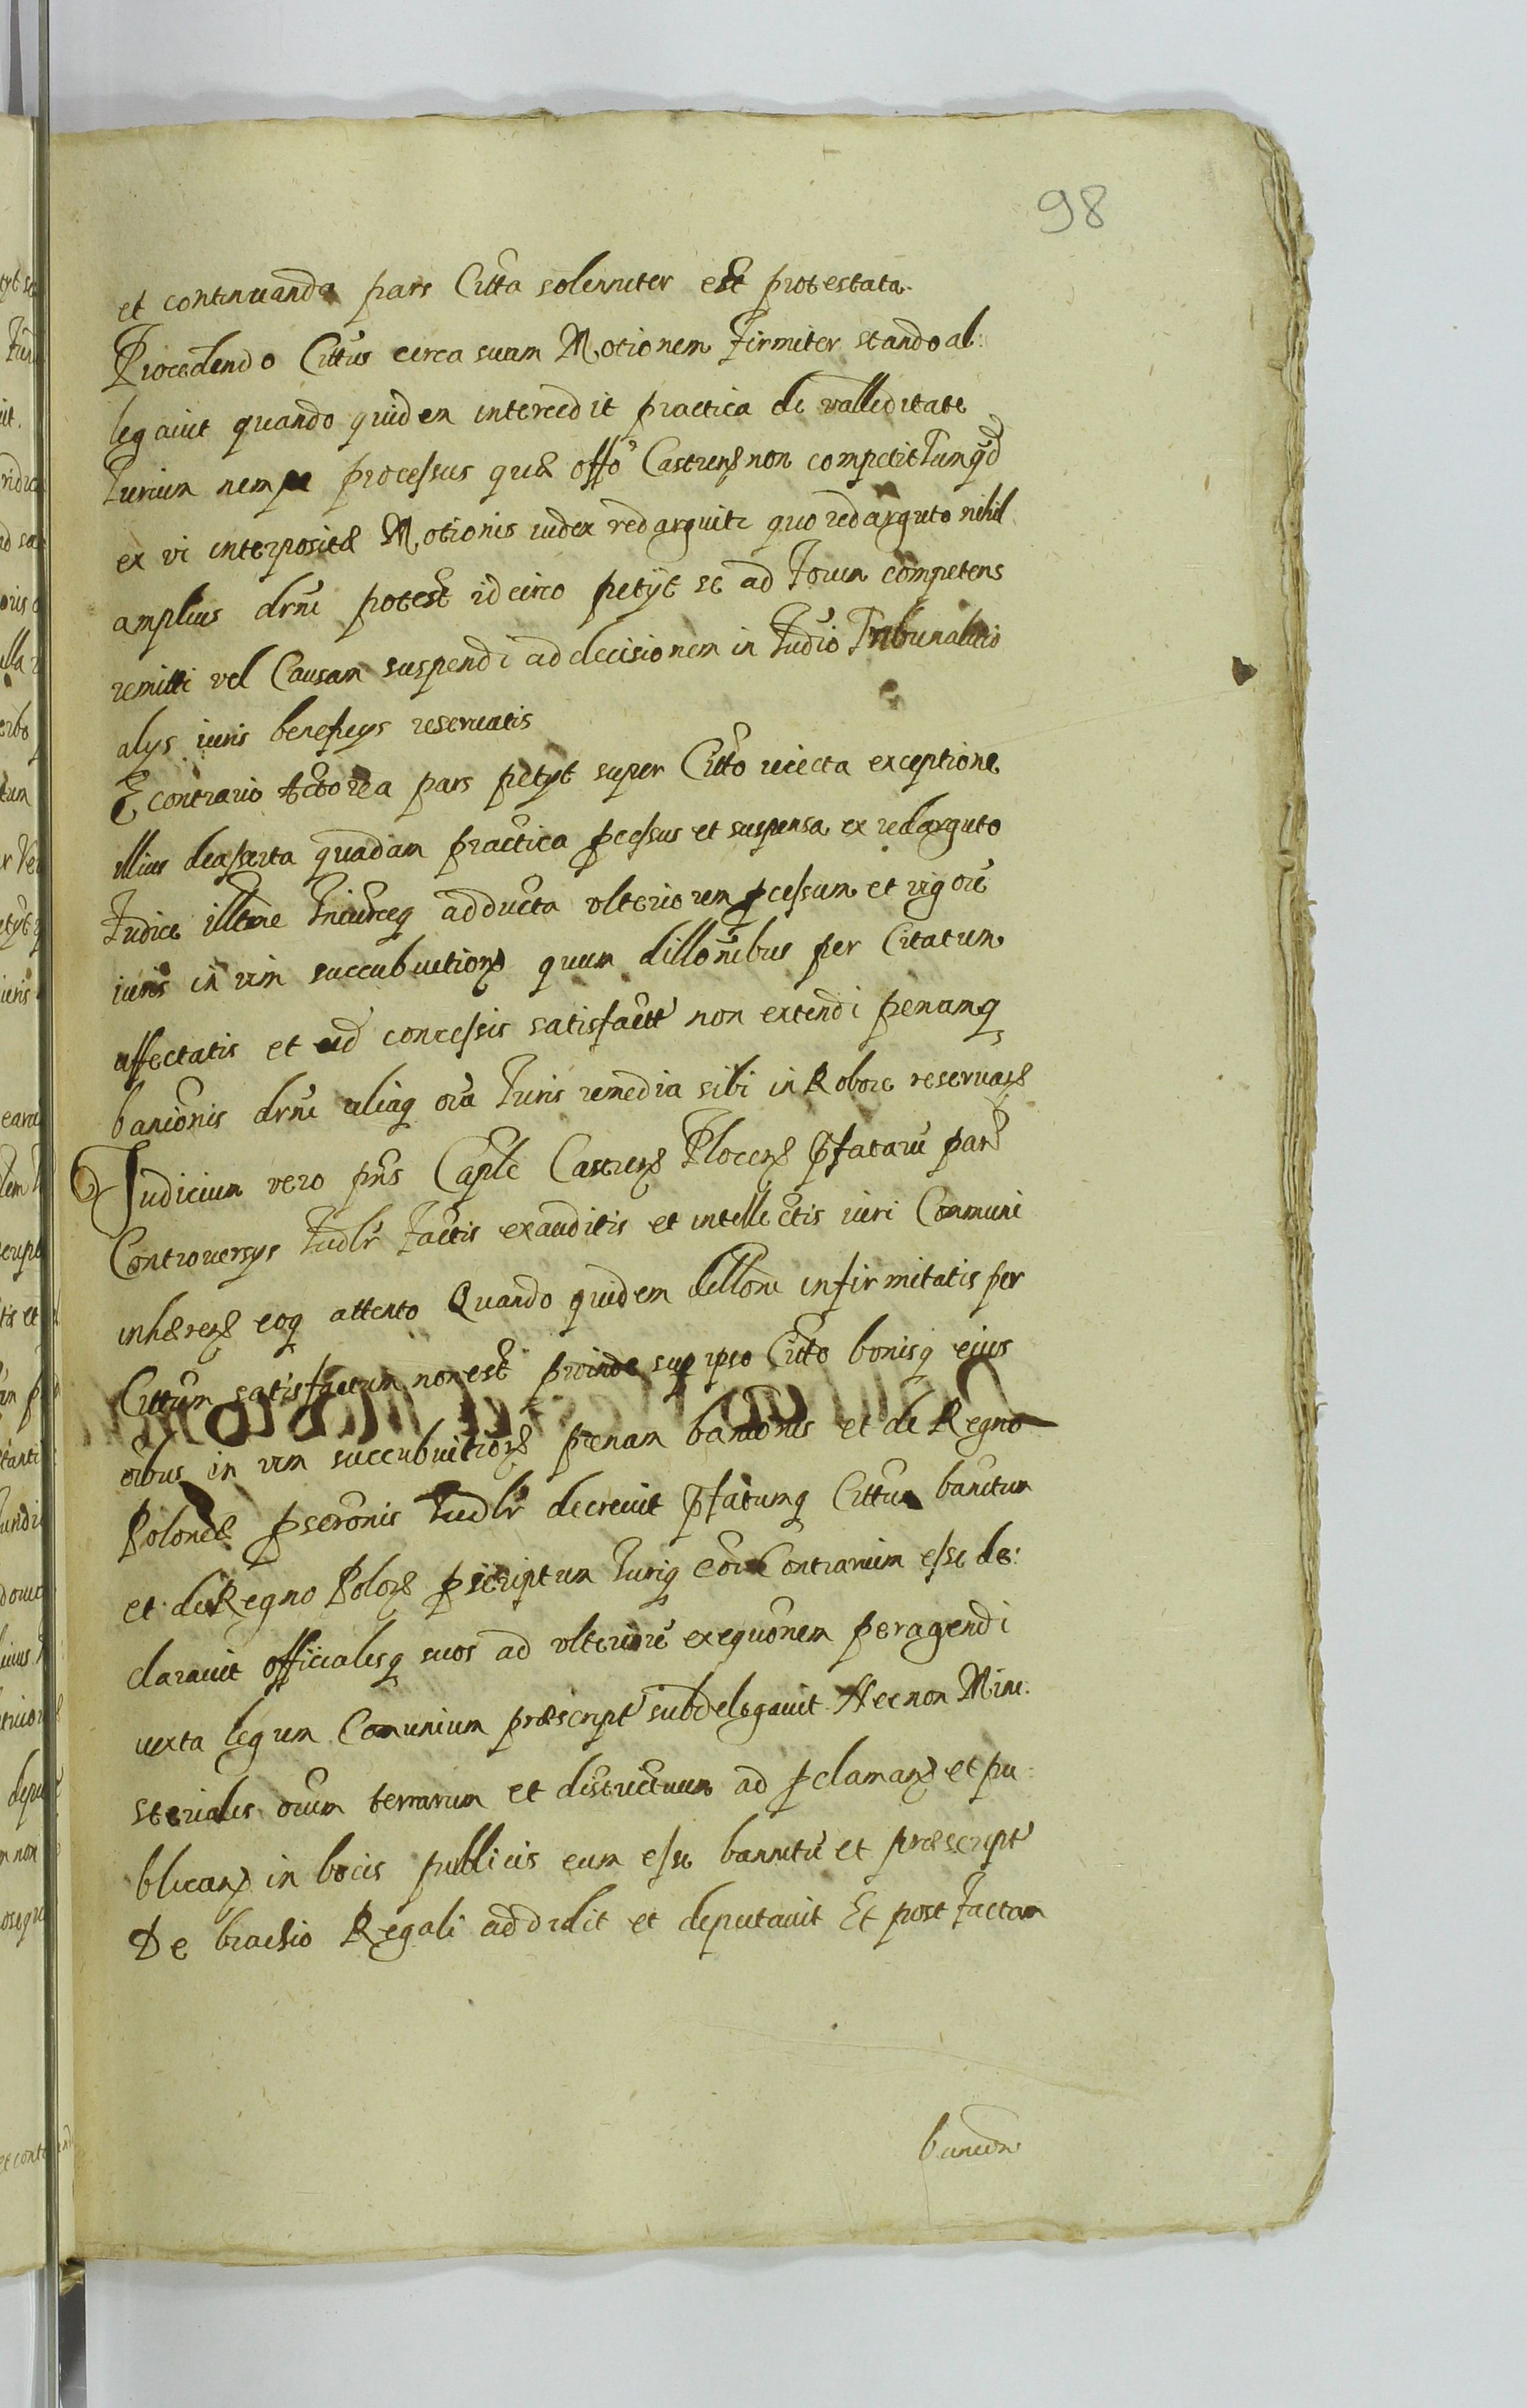 98
et continuanda pars Citta solenniter est protestata
Procedendo Cittus circa suam Motionem firmiter stando al:
legavit quando quidem intercedit practica de valleditate
Jurium nempe processus quæ offo Castrens non competit
ex vi interpositæ Motionis iudex redarguitr quo redarguto nihil
amplius potest idcirco petyt se ad forum competens
remitti vel Causam suspendi ad decisionem in Judio Tribunalitio
alys iuris beneficys reservatis
E contrario Actorea pars petyt super Citto reiecta exceptione
illius deasserta quadam practica pcessus et suspensa ex redarguto
Judice adducta ulteriorem pcessum et rigore
iuris in vim succubuitions quum dillonibus per Citatum
affectatis et concessis satisfactt non extendi penamq
banionis aliaq oia Juris remedia sibi in Robore reservans
Judicium vero pns Caple Castrens Plocens pfataru par
Controversys Judlr factis exauditis et intellectis iuri Communi
inhærens eoq attento Quando quidem dillone infirmitatis per
Cittum satisfactum non est proinde sup ipso Citto bonisq eius
oibus in vim succubuitions pænam banionis et de Regno
Poloniæ pscronis Judlr decrevit pfatumq Cittum banitum
et de Regno Polons pscriptum Juriq eoi Contrarium esse de:
claravit officialesq suos ad ulteriore exequonem peragendi
iuxta legum Comunium præscript subdelegavit Nec non Mini:
steriales oium terrarum et districtuum ad pclamans et pu:
blicans in locis publicis eum esse bannitu et præscript
De brachio Regali addidit et deputavit Et post factam
banion